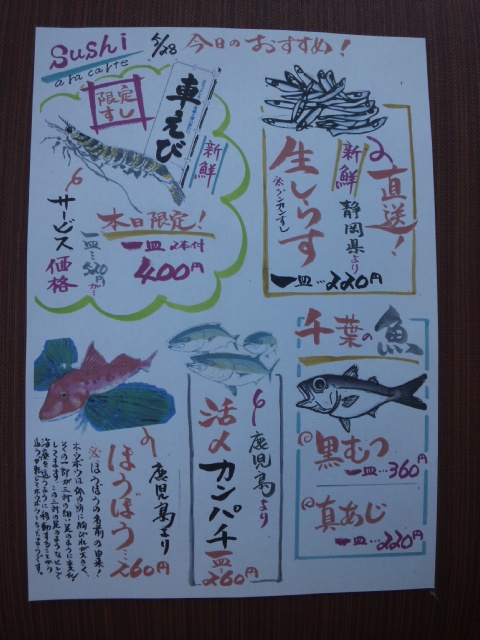 Sushi
a ra carte
5/28 今日のおすすめ!
限定
すし
車えび
新鮮
サービス
価格
本日限定!
一皿 2本付
一皿…520円が…
400円
直送!
新鮮
静岡県より
生しらす
※グンカンずし
一皿…220円
千葉の魚
黒むつ
一皿…360円
真あじ
一皿…220円
鹿児島より
活〆カンパチ
一皿…260円
鹿児島より
ほうぼう…260円
※ほうぼうの名前の由来!